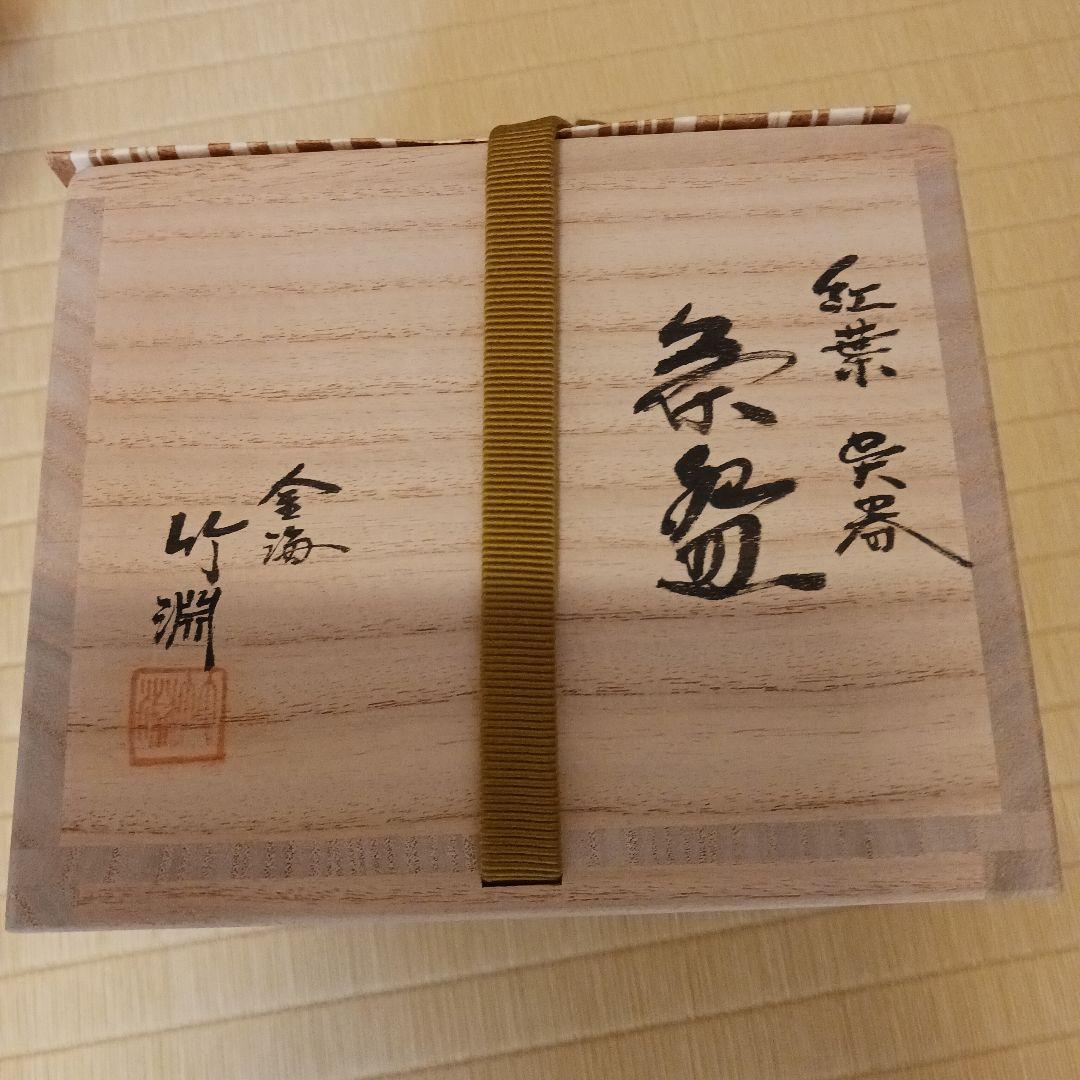 紅葉 呉器
茶盌
金海
竹淵